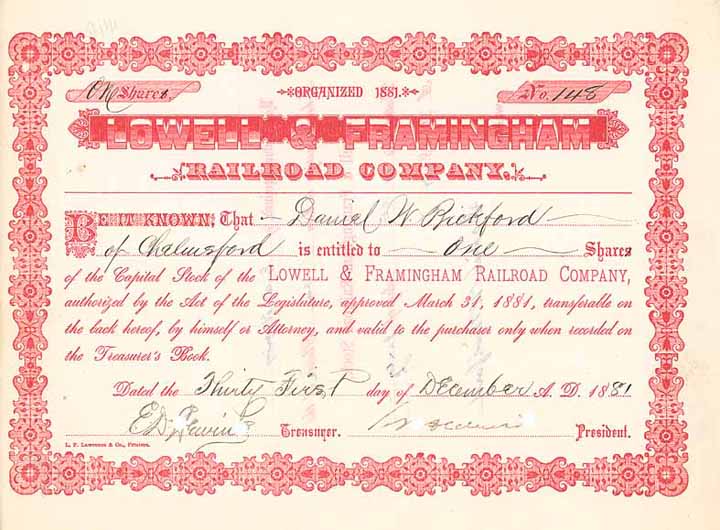 One Shares
ORGANIZED 1881.
No. 148
LOWELL & FRAMINGHAM
RAILROAD COMPANY.
BE IT KNOWN, That Daniel W. Bickford
of Chelmsford is entitled to One Shares
of the Capital Stock of the LOWELL & FRAMINGHAM RAILROAD COMPANY,
authorized by the Act of the Legislature, approved March 31, 1881, transferable on
the back hereof, by himself or Attorney, and valid to the purchaser only when recorded on
the Treasurer's Book.
Dated the Thirty First day of December A. D. 1881
Treasurer. President.
L. F. Lawrence & Co., Printers.